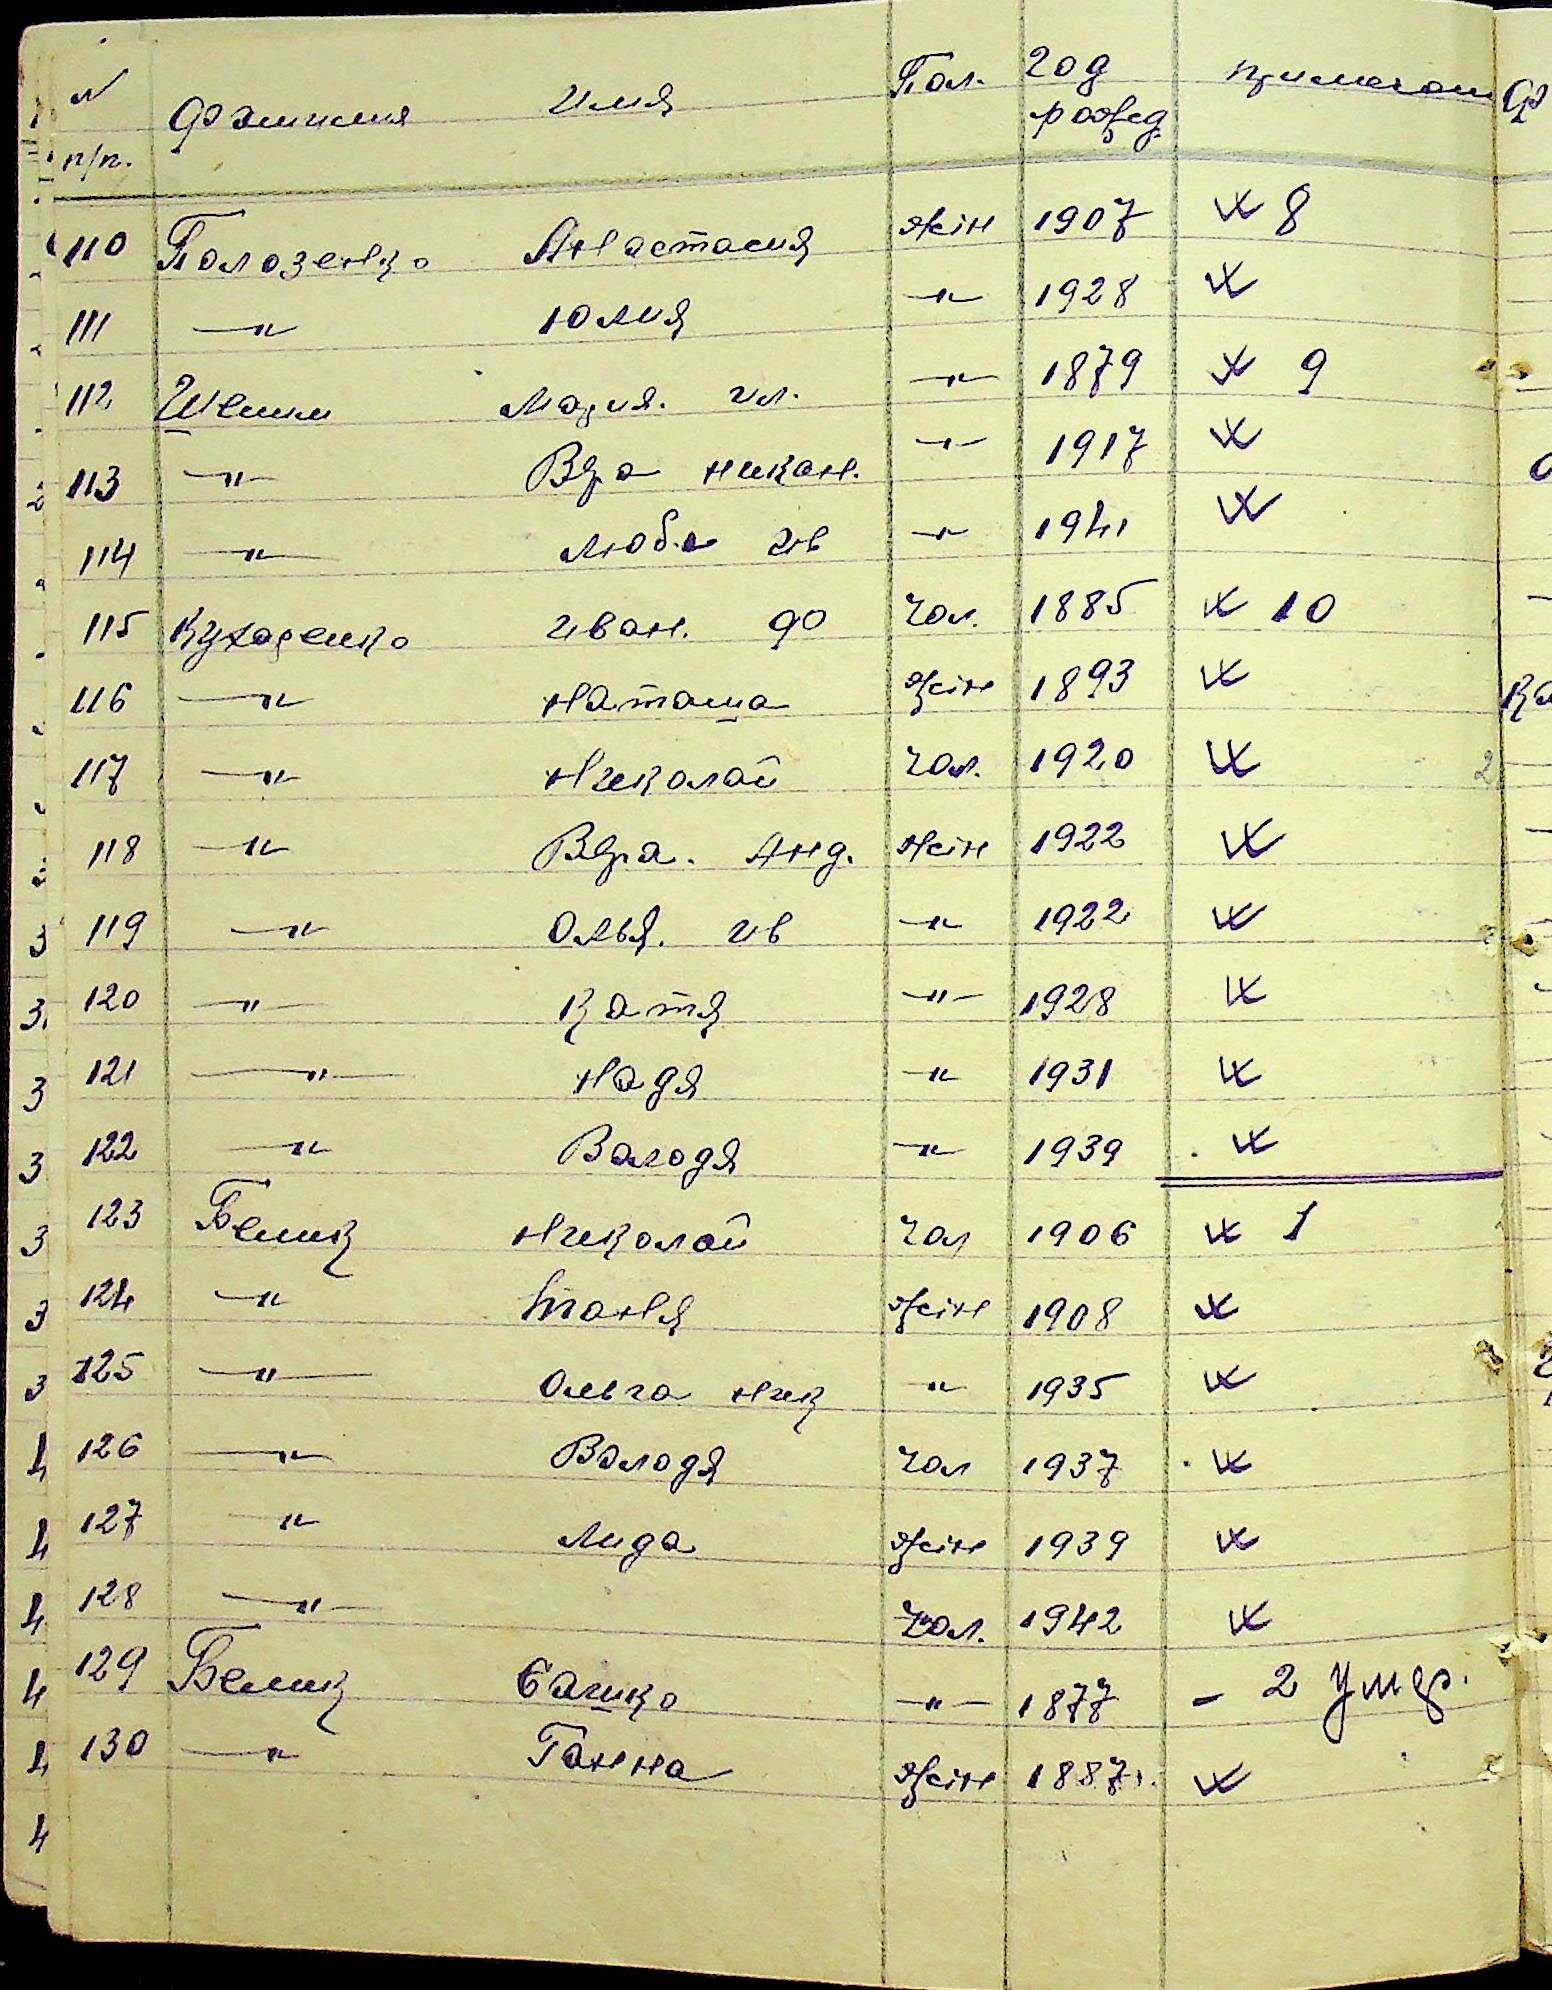 N п/п. Фамилия Имя Пол. год рожд примечан
110 Полозенко Анастасия жін 1907 8
111 —"— Юлия —"— 1928
112 Мария. ил. —"— 1879 9
113 —"— Вера никан. —"— 1917
114 —"— Люба ив —"— 1941
115 Кухаренко иван. ф Чол. 1885 10
116 —"— наташа жін 1893
117 —"— Николай Чол. 1920
118 —"— Вера. Анд. жін 1922
119 —"— Олья. ив —"— 1922
120 —"— Катя —"— 1928
121 —"— Надя —"— 1931
122 —"— Володя —"— 1939
123 Белик Николай Чол 1906 1
124 —"— Таня жін 1908
125 —"— Ольга ник —"— 1935
126 —"— Володя Чол 1937
127 —"— Лида жін 1939
128 —"— Чол. 1942
129 Белик Сашко —"— 1877 - 2 умер.
130 —"— Ганна жін 1887